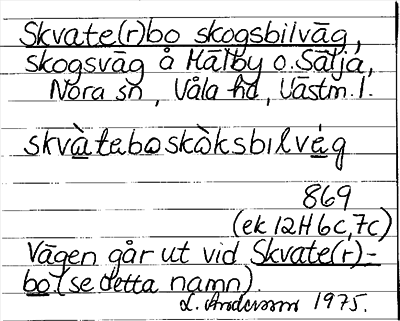 Skvate(r)bo skogsbilväg,
skogsväg å Hälby o. Sälja,
Nora sn, Våla hd, Västm. l.
skvàtaboskòksbɩlvég
869
(ek 12H 6c, 7c)
Vägen går ut vid Skvate(r)-
bo (se detta namn).
L. Andersson 1975.